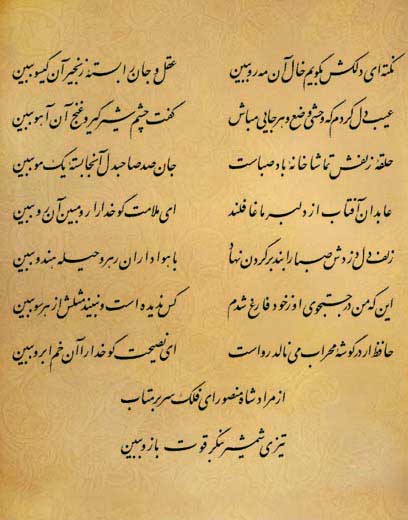 نکته ای دلکش بگویم خال آن مه رو ببین عقل و جان را بسته زنجیر آن گیسو ببین
عیب دل کردم که وحشی وضع و هرجایی مباش گفت چشم شیرگیر و غنج آن آهو ببین
حلقه زلفش تماشا خانه باد صباست جان صد صاحبدل آنجا بسته یک مو ببین
عابدان آفتاب از دلبر ما غافلند ای ملامت گو خدا را رو مبین آن رو ببین
زلف دل دزدش صبا را بند بر گردن نهاد با هواداران رهرو حیله هندو ببین
این که من در جستجوی او ز خود فارغ شدم کس ندیده است و نبیند مثلش از هر سو ببین
حافظ ار در گوشه محراب می نالد رواست ای نصیحت گو خدا را آن خم ابرو ببین
از مراد شاه منصور ای فلک سر بر متاب
تیزی شمشیر بنگر قوت بازو ببین